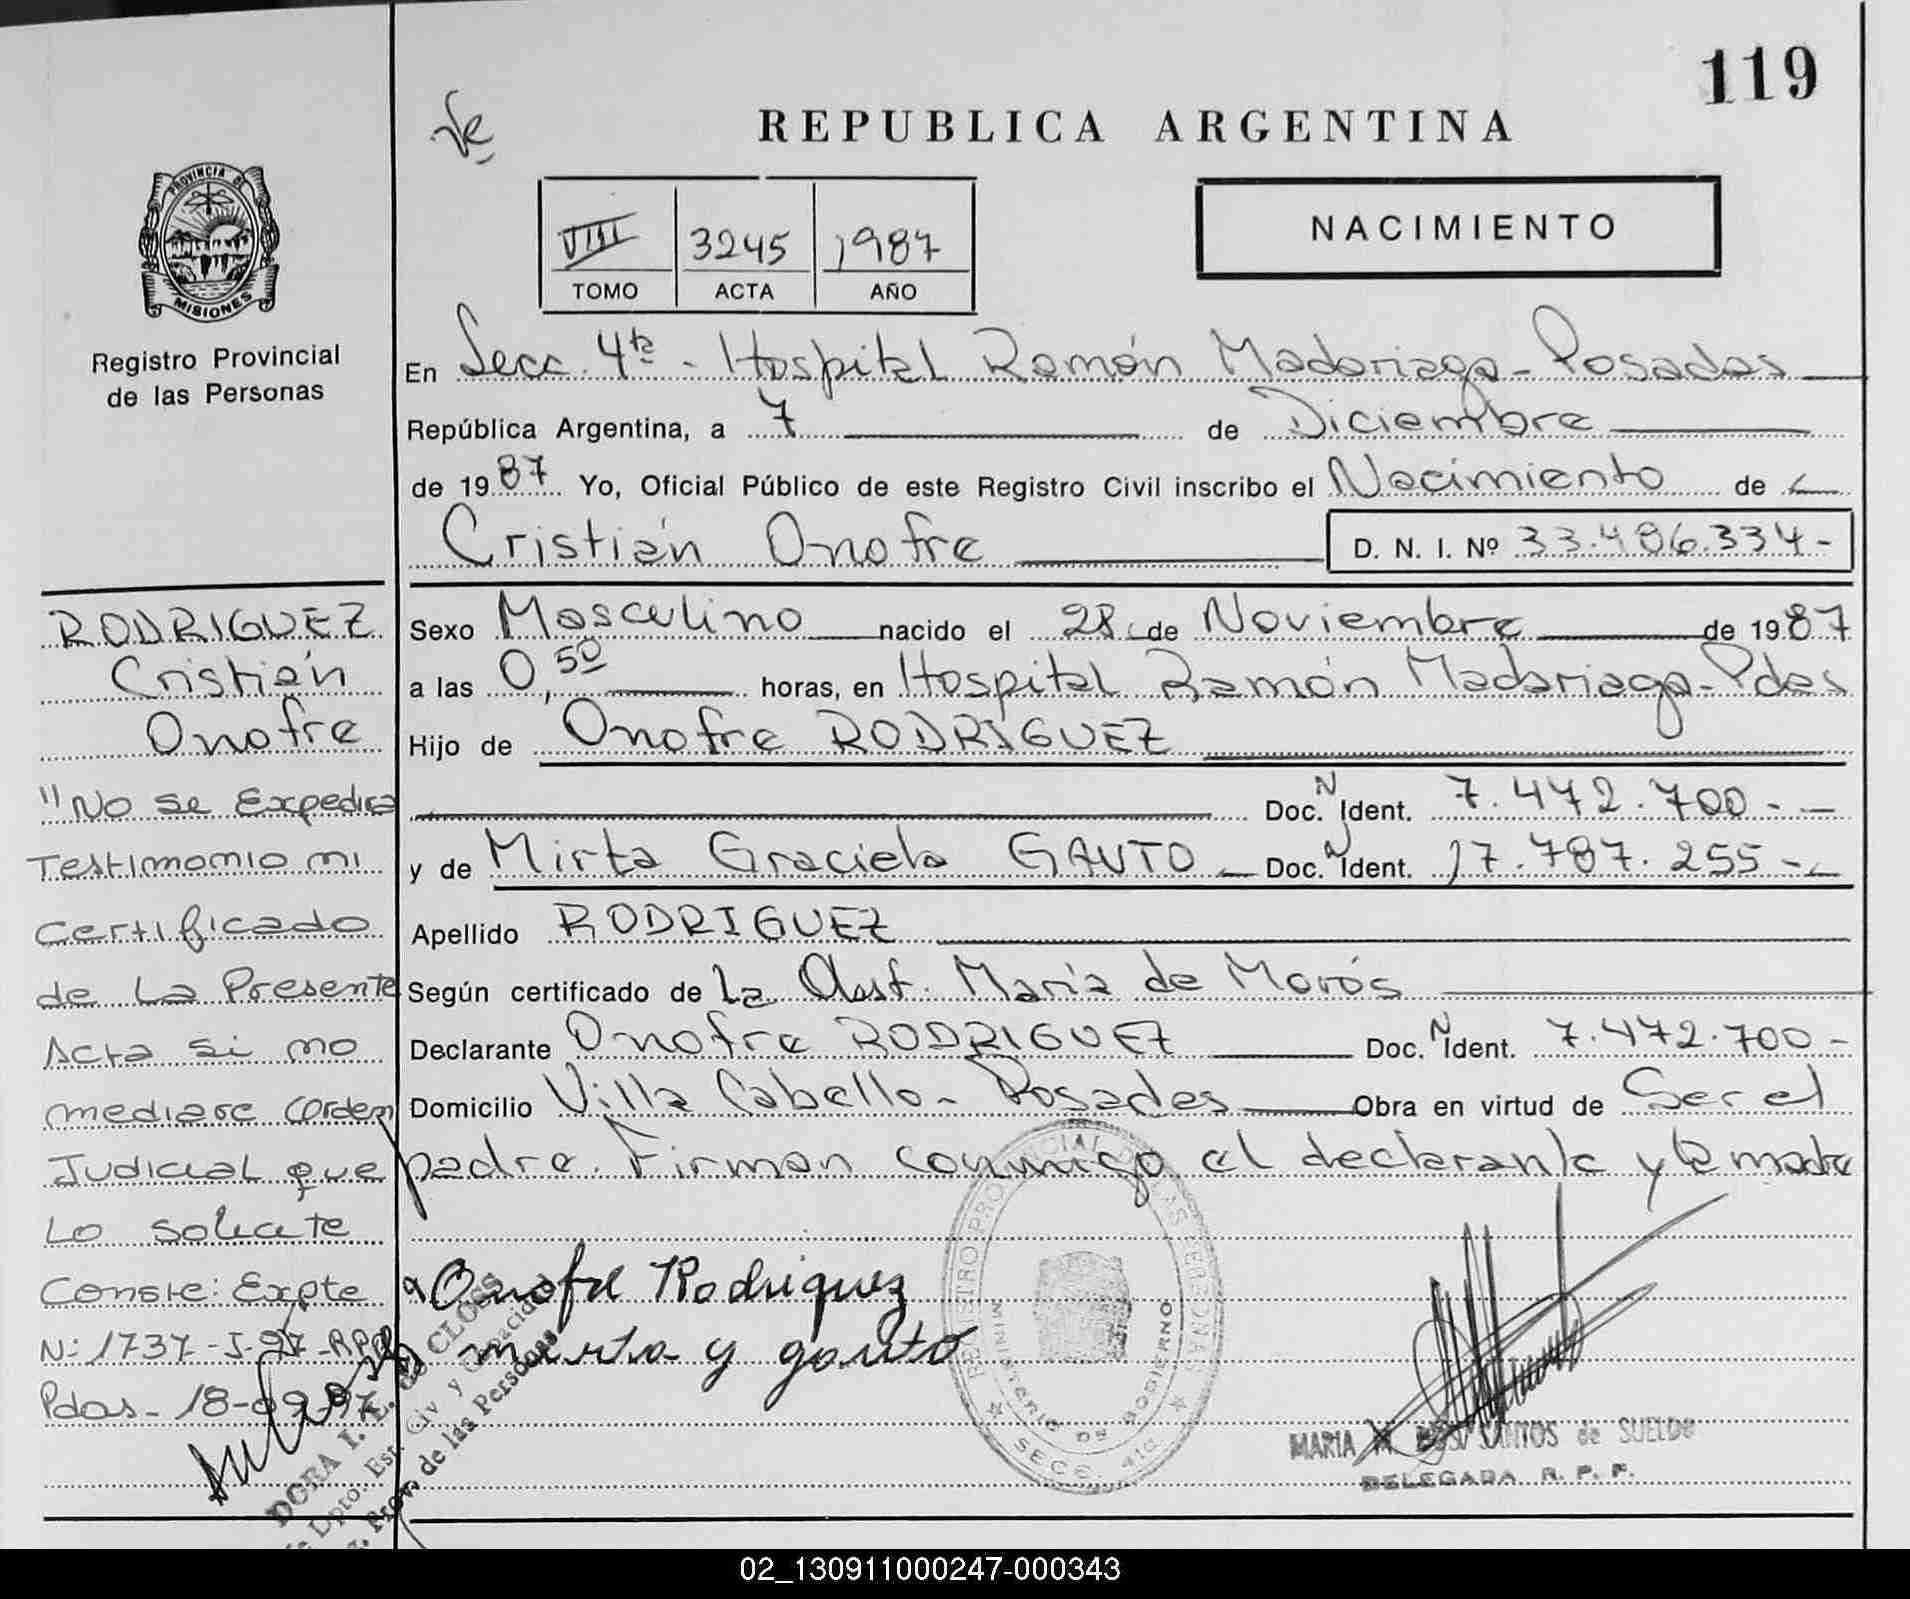 119
REPUBLICA ARGENTINA
PROVINCIA DE
MISIONES
Registro Provincial
de las Personas
VIII 3245 1987
TOMO ACTA AÑO
NACIMIENTO
En Secc. 4ta - Hospital Ramón Madariaga - Posadas
República Argentina, a 7 de Diciembre
de 1987 Yo, Oficial Público de este Registro Civil inscribo el Nacimiento de
Cristián Onofre D. N. I. Nº 33.486.334-
Sexo Masculino nacido el 28 de Noviembre de 1987
a las 0,50 horas, en Hospital Ramón Madariaga - Pdas
Hijo de Onofre RODRIGUEZ
Doc. N Ident. 7.472.700.-
y de Mirta Graciela GAUTO Doc. N Ident. 17.787.255-
Apellido RODRIGUEZ
Según certificado de La Obst. María de Morós
Declarante Onofre RODRIGUEZ Doc. N Ident. 7.472.700-
Domicilio Villa Cabello - Posadas Obra en virtud de Ser el
padre. Firman conmigo el declarante y la madre
Onofre Rodriguez
mirta y gauto
REGISTRO PROVINCIAL DE LAS PERSONAS
MINISTERIO DE GOBIERNO
SECC. 4ta
MARIA DOS SANTOS de SUELDO
DELEGADA R. P. P.
RODRIGUEZ
Cristián
Onofre
"No se Expedira
Testimonio ni
certificado
de La Presente
Acta si no
mediare orden
Judicial que
Lo solicite
Conste: Expte
N: 1737-J-97-RPP
Pdas - 18-09-97
DORA I. L. de CLOSS
Dpto. Est. Civ y Capacidad
Prov. de las Personas
02_130911000247-000343